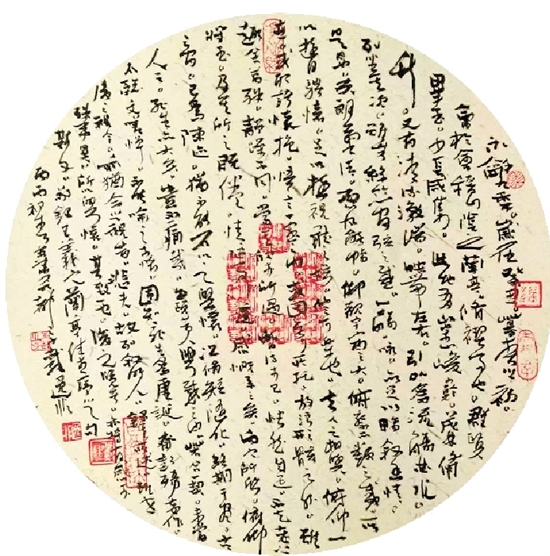 永和九年。歲在癸丑。暮春之初。
會於會稽山陰之蘭亭。修禊事也。群賢
畢至。少長咸集。此地有崇山峻嶺。茂林脩
竹。又有清流激湍。映帶左右。引以為流觴曲水。
列坐其次。雖無絲竹管弦之盛。一觴一詠。亦足以暢敘幽情。
是日也。天朗氣清。惠風和暢。仰觀宇宙之大。俯察品類之盛。所
以遊目騁懷。足以極視聽之娛。信可樂也。夫人之相與。俯仰一
世。或取諸懷抱。悟言一室之內。或因寄所託。放浪形骸之外。雖
趣舍萬殊。靜躁不同。當其欣於所遇。暫得於己。快然自足。不知老之
將至。及其所之既倦。情隨事遷。感慨係之矣。向之所欣。俯仰
之間。已為陳跡。猶不能不以之興懷。況修短隨化。終期於盡。古
人云。死生亦大矣。豈不痛哉。每覽昔人興感之由。若合一契。未嘗
不臨文嗟悼。不能喻之於懷。固知一死生為虛誕。齊彭殤為妄作。
後之視今。亦猶今之視昔。悲夫。故列敘時人。錄其所述。雖世
殊事異。所以興懷。其致一也。後之覽者。亦將有感於
斯文。右錄王羲之蘭亭集序